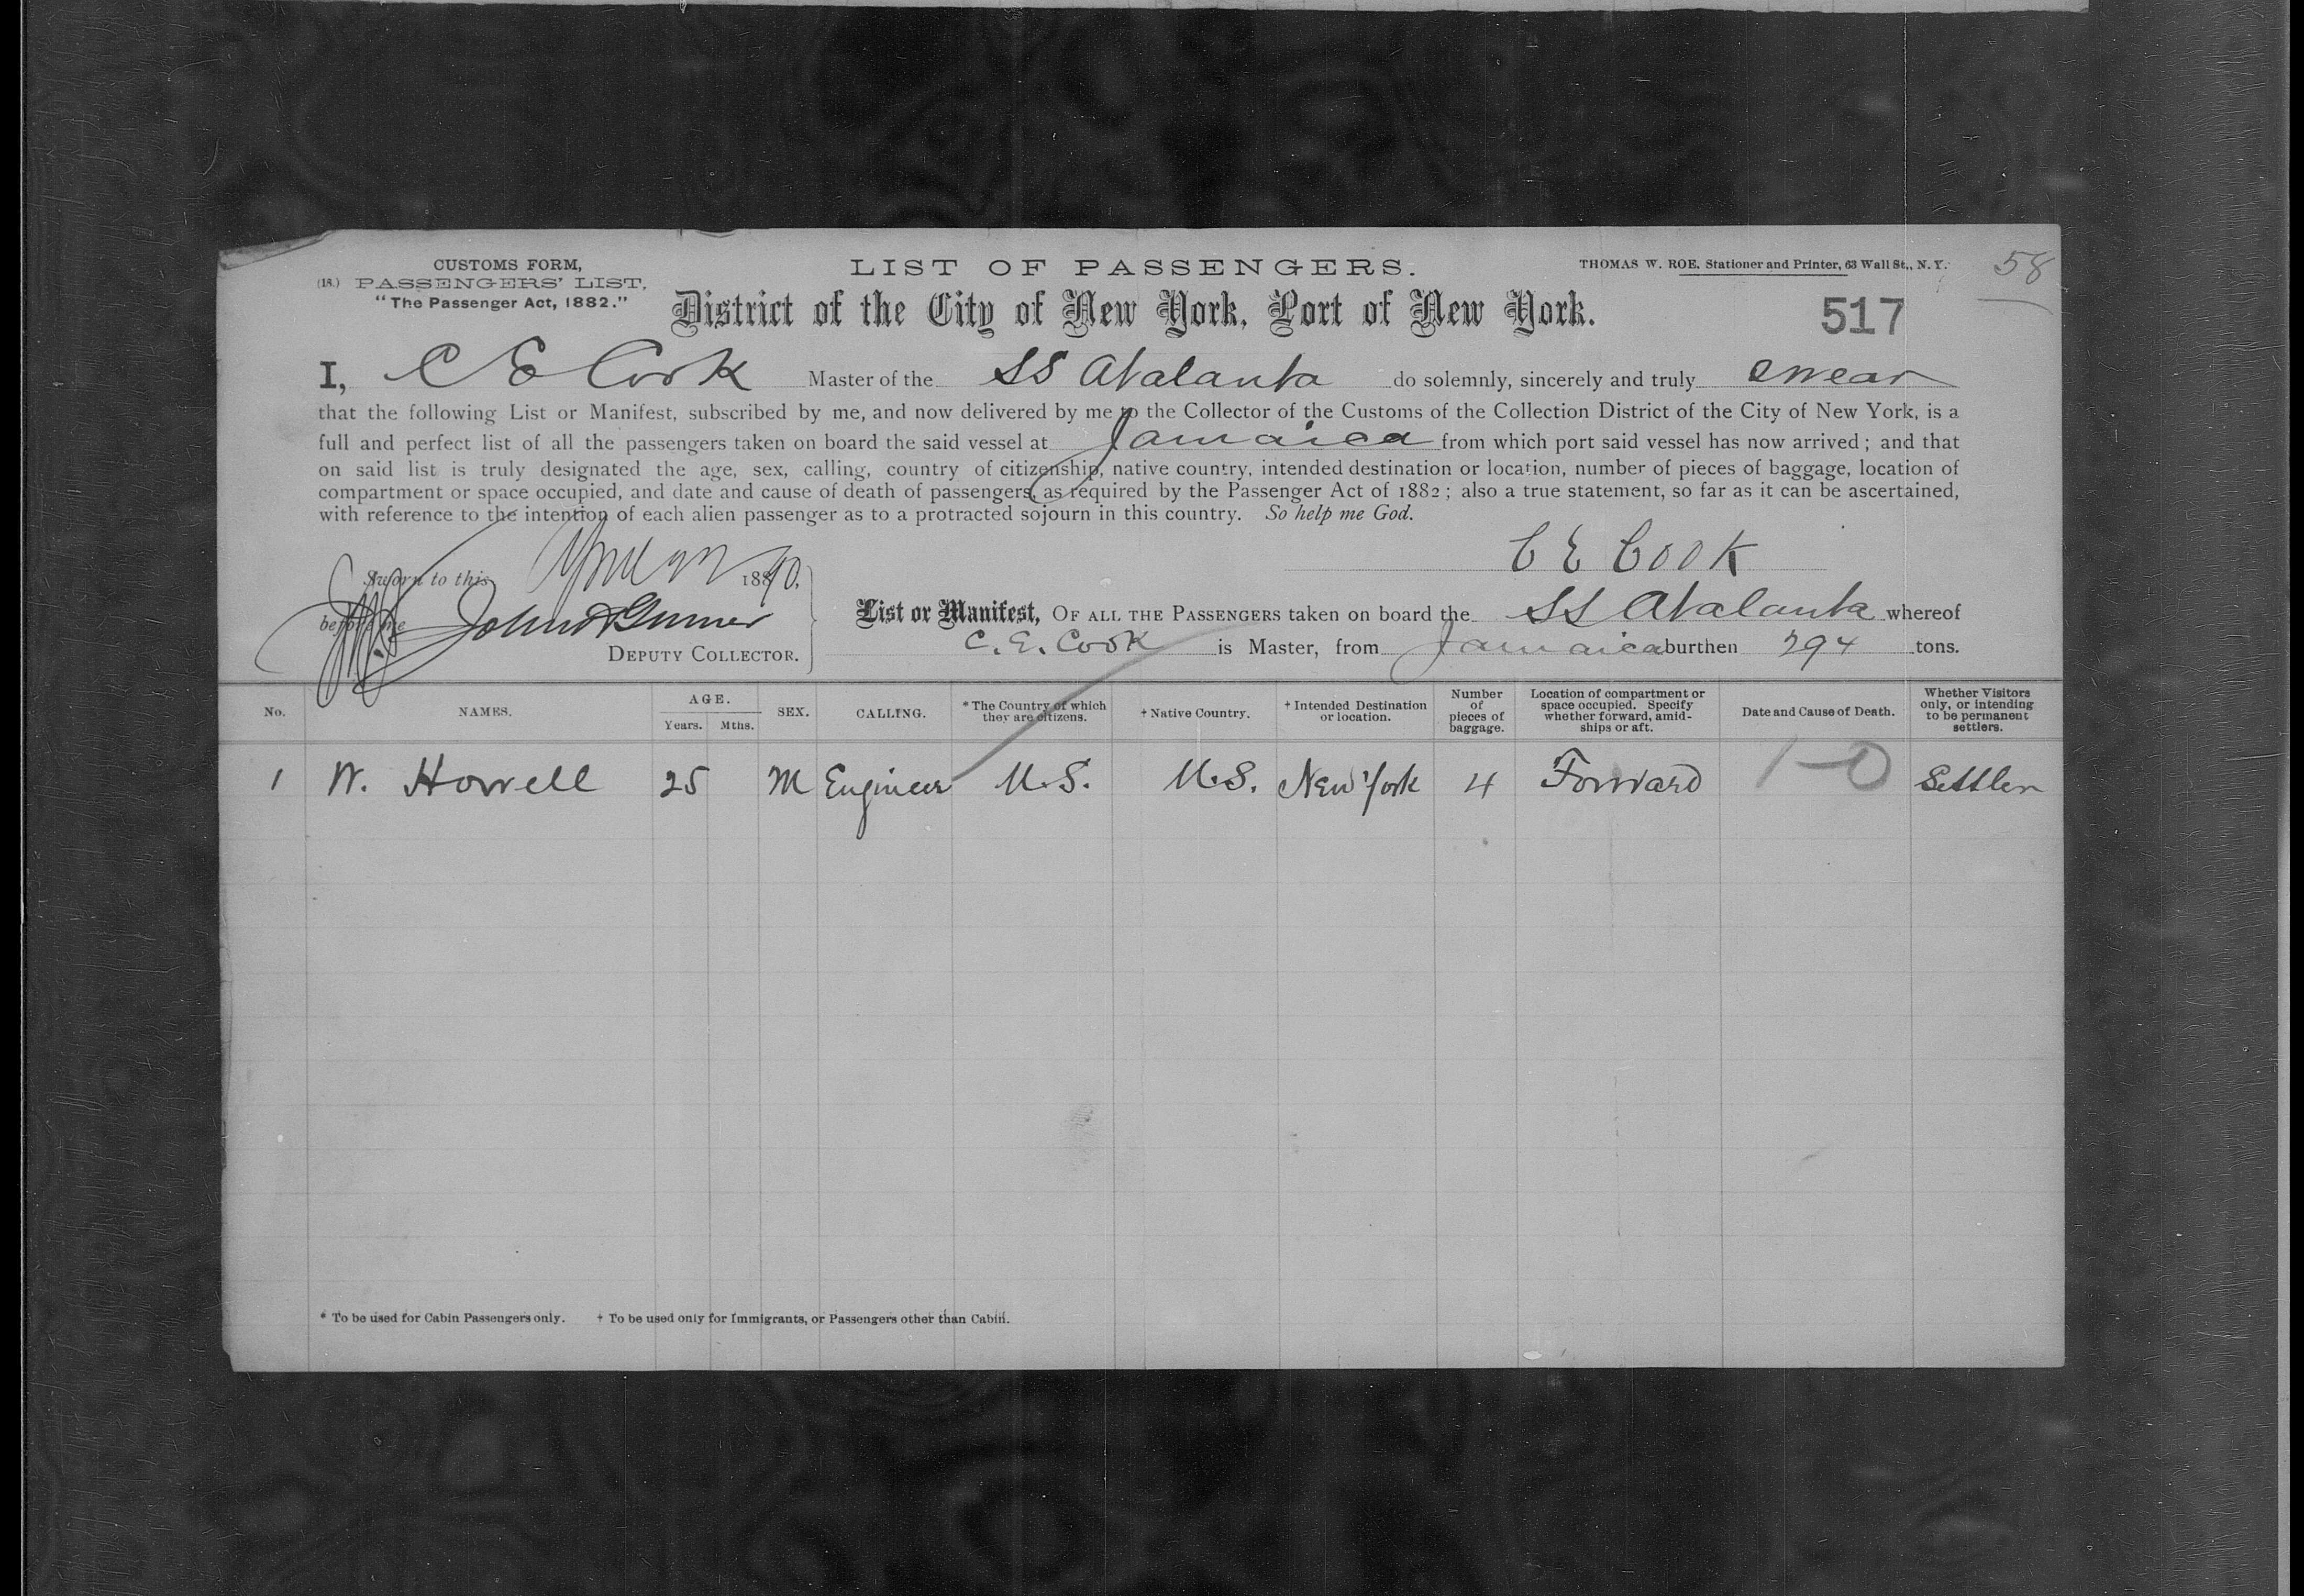 CUSTOMS FORM,
(18.) PASSENGERS' LIST,
"The Passenger Act, 1882."
LIST OF PASSENGERS.
THOMAS W. ROE. Stationer and Printer, 63 Wall St., N. Y.
58
District of the City of New York, Port of New York.
517
I, C E Cook Master of the SS Atalanta do solemnly, sincerely and truly swear
that the following List or Manifest, subscribed by me, and now delivered by me to the Collector of the Customs of the Collection District of the City of New York, is a
full and perfect list of all the passengers taken on board the said vessel at Jamaica from which port said vessel has now arrived; and that
on said list is truly designated the age, sex, calling, country of citizenship, native country, intended destination or location, number of pieces of baggage, location of
compartment or space occupied, and date and cause of death of passengers, as required by the Passenger Act of 1882; also a true statement, so far as it can be ascertained,
with reference to the intention of each alien passenger as to a protracted sojourn in this country. So help me God.
C E Cook
Sworn to this April 22 1890.
before me John
DEPUTY COLLECTOR.
List or Manifest, OF ALL THE PASSENGERS taken on board the SS Atalanta whereof
C. E. Cook is Master, from Jamaica burthen 294 tons.
No. NAMES. AGE. Years. Mths. SEX. CALLING. * The Country of which they are citizens. † Native Country. † Intended Destination or location. Number of pieces of baggage. Location of compartment or space occupied. Specify whether forward, amidships or aft. Date and Cause of Death. Whether Visitors only, or intending to be permanent settlers.
1 W. Howell 25 M Engineer U.S. U.S. New York 4 Forward 1-0 Settler
* To be used for Cabin Passengers only. † To be used only for Immigrants, or Passengers other than Cabin.